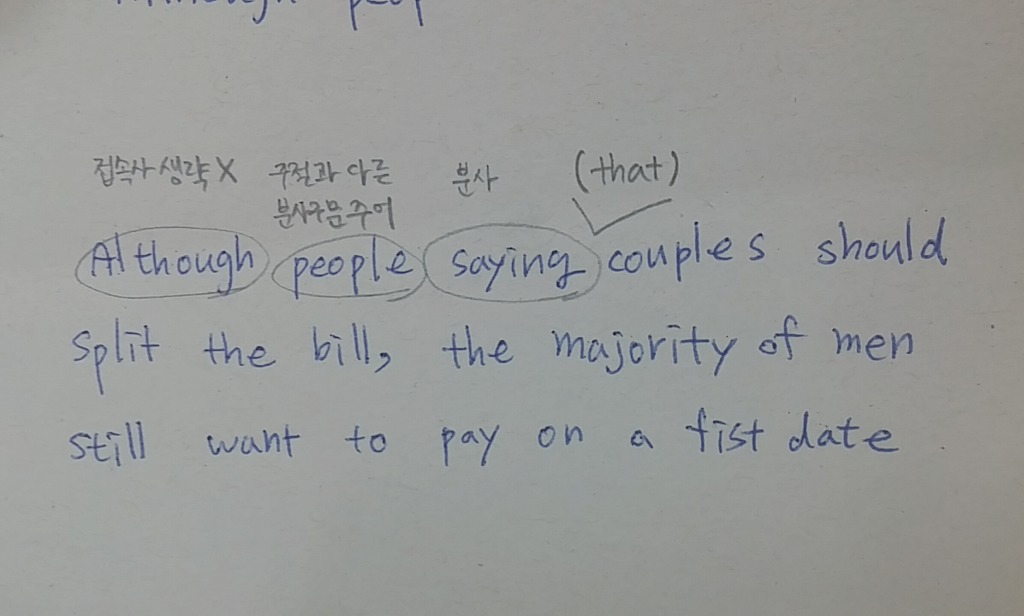 접속사 생략 X 구절과 다른 분사 (that)
분사구문 주어
Although people saying couples should
split the bill, the majority of men
still want to pay on a fist date